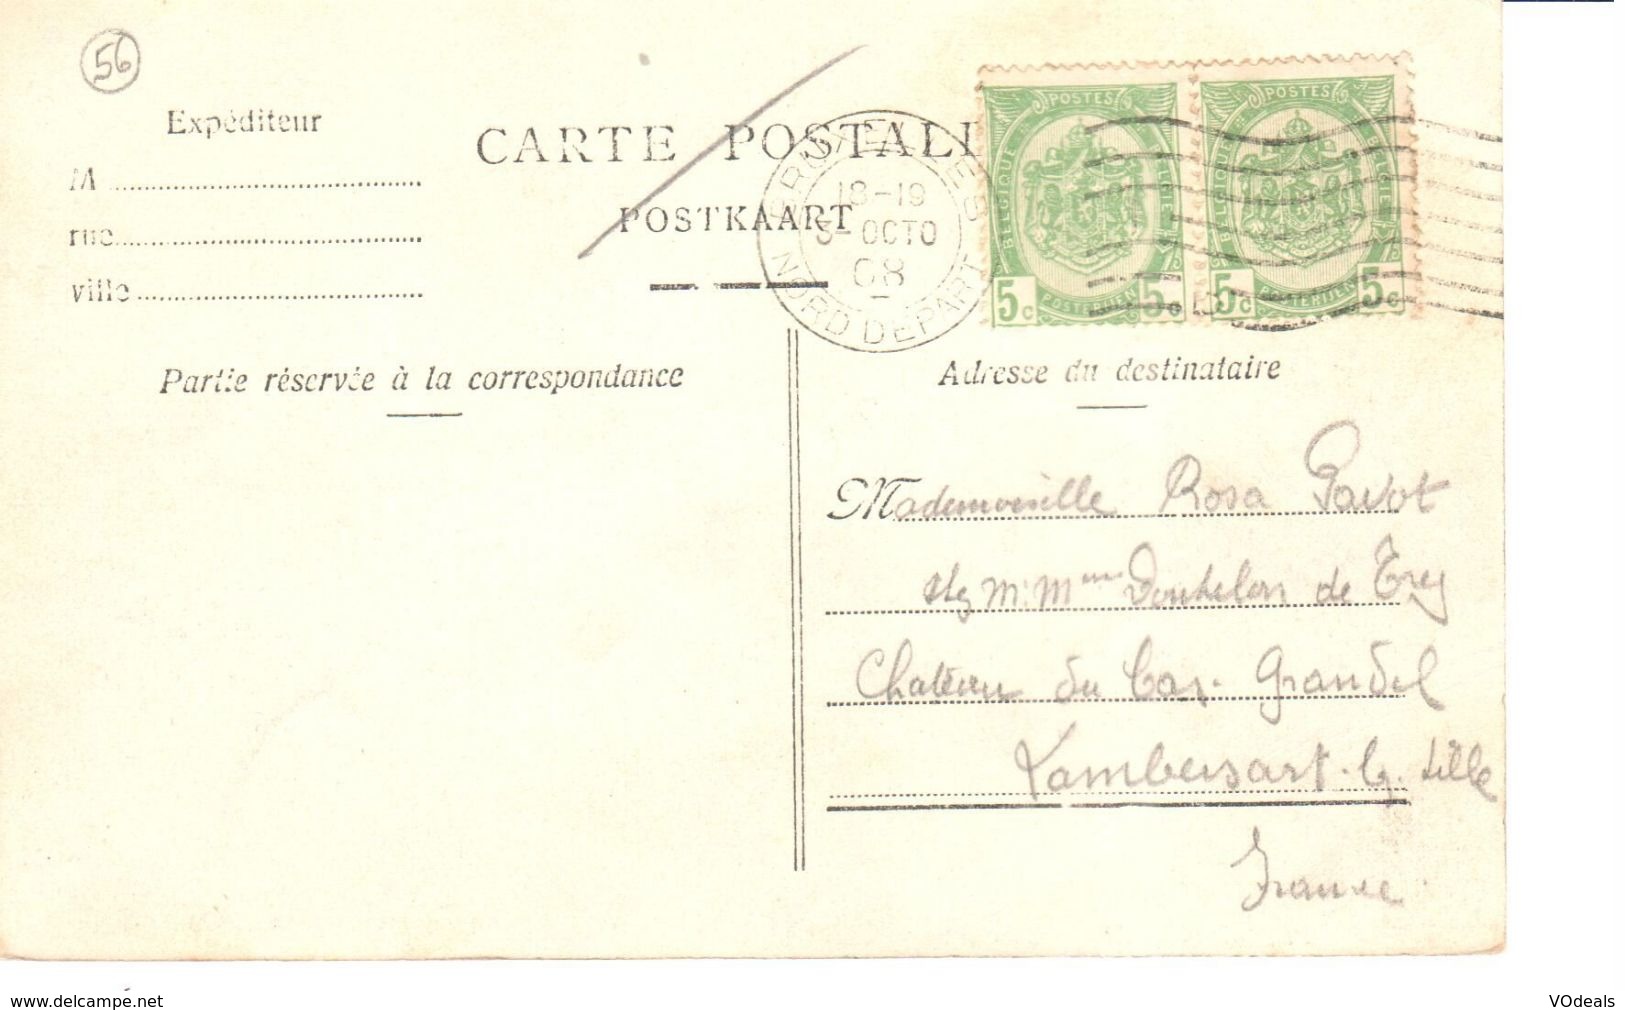 56
Expéditeur
M
rue
ville
CARTE POSTALE
POSTKAART
BRUXELLES
18-19
3- OCTO
08
NORD DEPART
POSTES
BELGIQUE
BELGIE
5c POSTERIJEN 5c
POSTES
BELGIQUE
BELGIE
5c POSTERIJEN 5c
Partie réservée à la correspondance
Adresse du destinataire
Mademoiselle Rosa Pavot
M. Mme de
Château du
Lambersart. Lille
France
www.delcampe.net
VOdeals